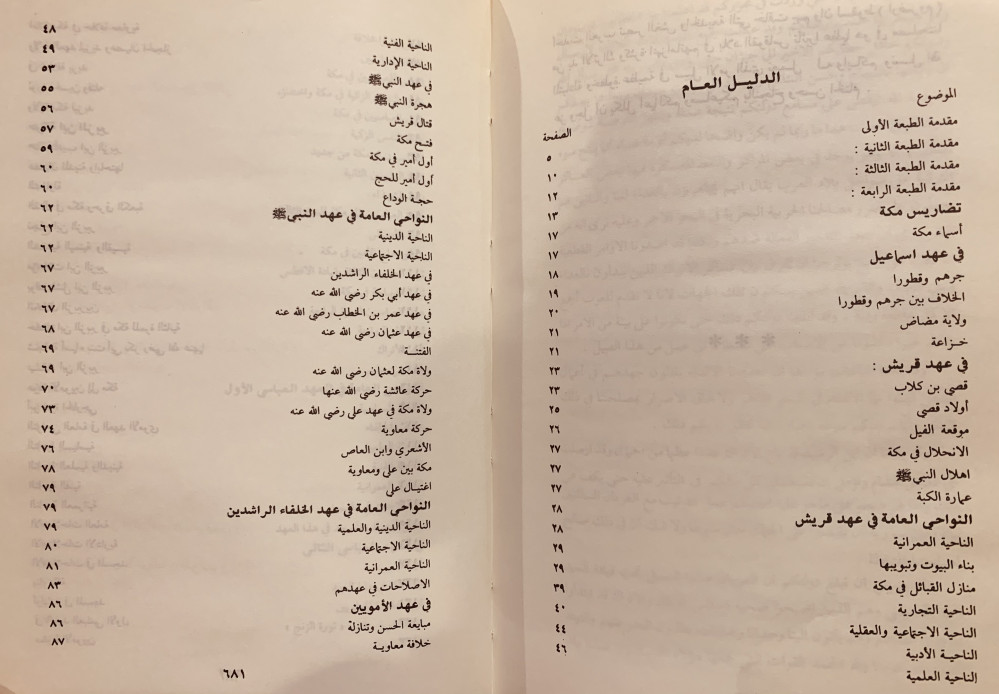 الدليل العام
الموضوع الصفحة
مقدمة الطبعة الأولى ٥
مقدمة الطبعة الثانية : ١٠
مقدمة الطبعة الثالثة : ١٢
مقدمة الطبعة الرابعة : ١٣
تضاريس مكة ١٧
أسماء مكة ١٧
في عهد اسماعيل ١٨
جرهم وقطورا ١٩
الخلاف بين جرهم وقطورا ٢٠
ولاية مضاض ٢١
خـزاعة ٢١
في عهد قريش : ٢٣
قصي بن كلاب ٢٣
أولاد قصي ٢٥
موقعة الفيل ٢٦
الانحلال في مكة ٢٧
اهلال النبي ﷺ ٢٧
عمارة الكبة ٢٧
النواحي العامة في عهد قريش ٢٨
الناحية العمرانية ٢٨
بناء البيوت وتبويبها ٢٩
منازل القبائل في مكة ٢٩
الناحية التجارية ٣٩
الناحية الاجتماعية والعقلية ٤٠
الناحيـة الأدبية ٤٤
الناحية العلمية ٤٦
الناحية الفنية ٤٨
الناحية الإدارية ٤٩
في عهد النبي ﷺ ٥٣
هجرة النبي ﷺ ٥٥
قتال قريش ٥٦
فتح مكة ٥٧
أول أمير في مكة ٥٩
أول أمير للحج ٦٠
حجة الوداع ٦٠
النواحي العامة في عهد النبي ﷺ ٦٢
الناحية الدينية ٦٢
الناحية الاجتماعية ٦٢
في عهد الخلفاء الراشدين ٦٧
في عهد أبي بكر رضي الله عنه ٦٧
في عهد عمر بن الخطاب رضي الله عنه ٦٧
في عهد عثمان رضي الله عنه ٦٨
الفتنـــة ٦٩
ولاة مكة لعثمان رضي الله عنه ٦٩
حركة عائشة رضي الله عنها ٧٠
ولاة مكة في عهد على رضي الله عنه ٧٣
حركة معاوية ٧٤
الأشعري وابن العاص ٧٦
مكة بين على ومعاوية ٧٨
اغتيـال على ٧٩
النواحي العامة في عهد الخلفاء الراشدين ٧٩
الناحية الدينية والعلمية ٧٩
الناحية الاجتماعية ٨٠
الناحية العمرانية ٨١
الاصلاحات في عهدهم ٨٣
في عهد الأمويين ٨٦
مبايعة الحسن وتنازلة ٨٦
خلافة معاويـة ٨٧
٦٨١